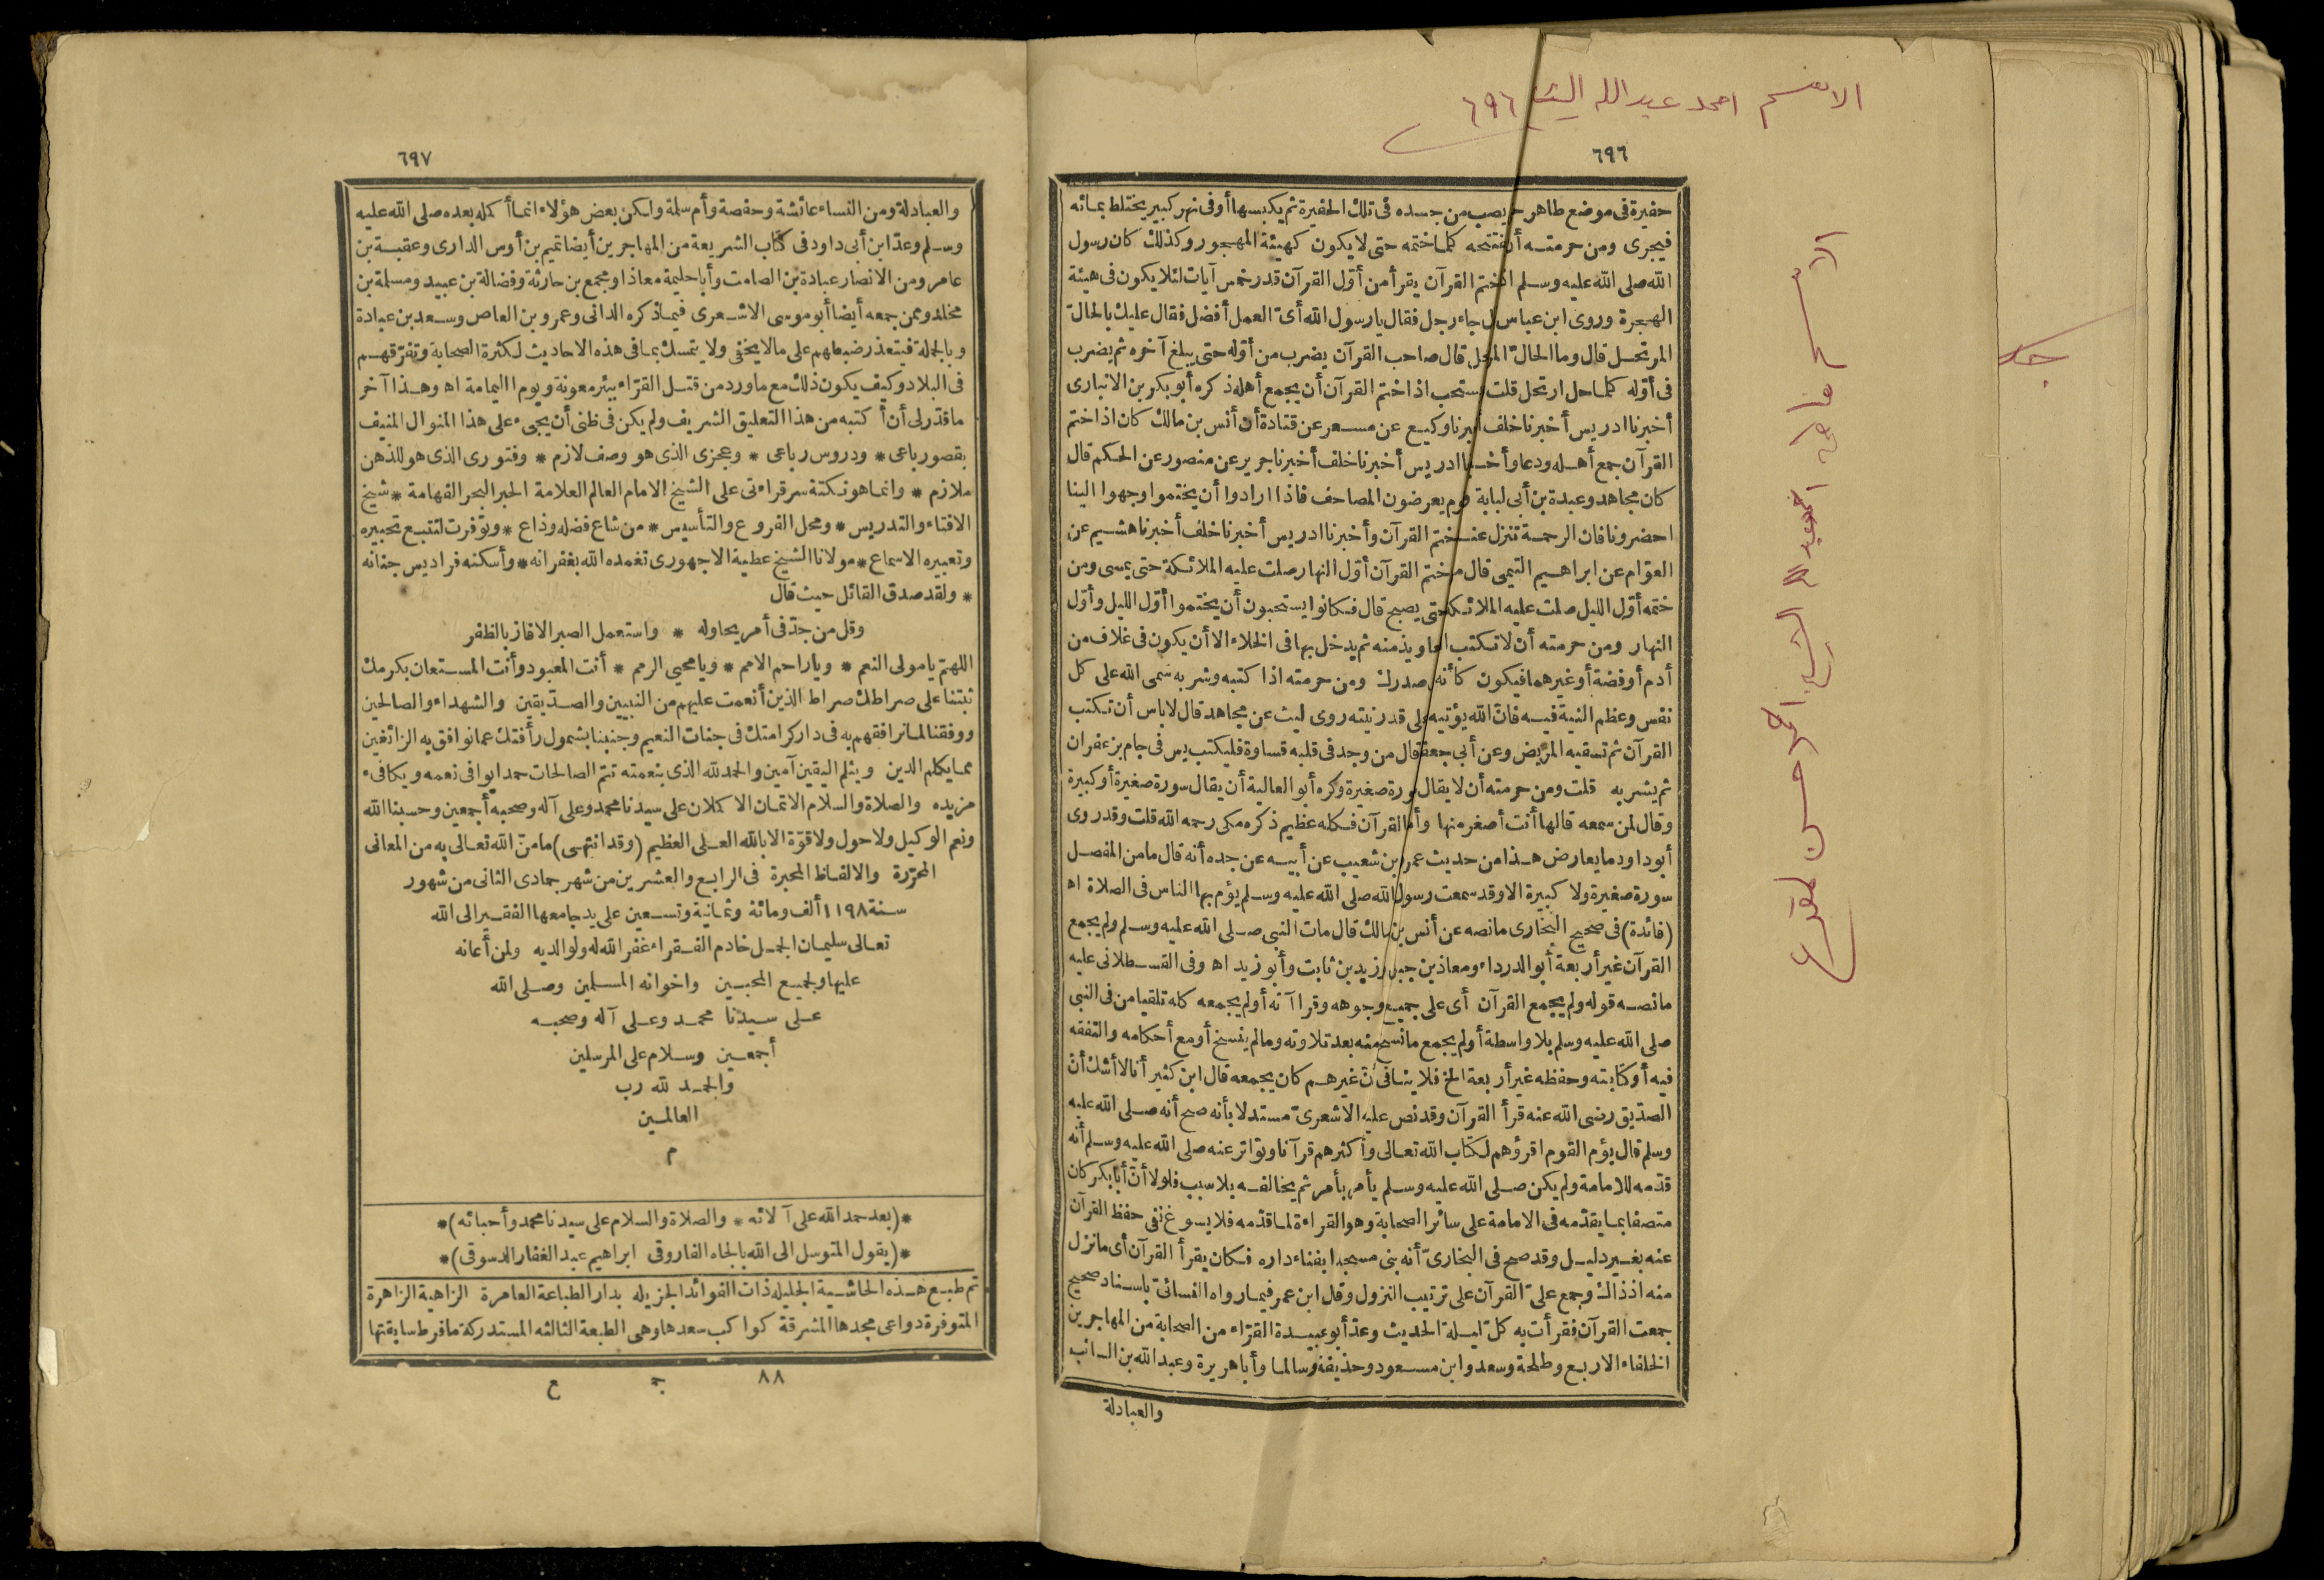 ٦٩٦
٦٩٦
حفيرة فى موضع طاهر يصب من جسده فى تلك الحفيرة ثم يكبسها أوفى نهر كبير يختلط بمائه
فيجرى ومن حرمته أن يفتتحه كلما ختمه حتى لا يكون كهيئة المهجور وكذلك كان رسول
الله صلى الله عليه وسلم اذا ختم القرآن يقرأ من أول القرآن قدر خمس آيات لئلا يكون فى هيئة
الهجرة وروى ابن عباس قال جاء رجل فقال يارسول الله أىّ العمل أفضل فقال عليك بالحالّ
المرتحل قال وما الحالّ المرتحل قال صاحب القرآن يضرب من أوّله حتى يبلغ آخره ثم يضرب
فى أوّله كلما حل ارتحل قلت ويستحب اذا ختم القرآن أن يجمع أهله ذكره أبو بكر بن الانبارى
أخبرنا ادريس أخبرنا خلف أخبرنا وكيع عن مسعر عن قتادة أن أنس بن مالك كان اذا ختم
القرآن جمع أهله ودعا وأخبرنا ادريس أخبرنا خلف أخبرنا جرير عن منصور عن الحكم قال
كان مجاهد وعبدة بن أبى لبابة وقوم يعرضون المصاحف فاذا ارادوا أن يختموا وجهوا الينا
احضرونا فان الرحمة تنزل عند ختم القرآن وأخبرنا ادريس أخبرنا خلف أخبرنا هشيم عن
العوّام عن ابراهيم التيمى قال من ختم القرآن أوّل النهار صلت عليه الملائكة حتى يمسى ومن
ختمه أوّل الليل صلت عليه الملائكة حتى يصبح قال فكانوا يستحبون أن يختموا أوّل الليل وأوّل
النهار ومن حرمته أن لا تكتب التعاويذ منه ثم يدخل بها فى الخلاء الا أن يكون فى غلاف من
أدم أو فضة أو غيرهما فيكون كأنه فى صدرك ومن حرمته اذا كتبه وشربه سمى الله على كل
نفس وعظم النية فيه فانّ الله يؤتيه على قدر نيته روى ليث عن مجاهد قال لا باس أن تكتب
القرآن ثم تسقيه المريض وعن أبى جعفر قال من وجد فى قلبه قساوة فليكتب يس فى جام بزعفران
ثم يشربه قلت ومن حرمته أن لا يقال سورة صغيرة وكره أبو العالية أن يقال سورة صغيرة أو كبيرة
وقال لمن سمعه قالها أنت أصغر منها وأما القرآن فكله عظيم ذكره مكى رحمه الله قلت وقد روى
أبو داود ما يعارض هذا من حديث عمرو بن شعيب عن أبيه عن جده أنه قال ما من المفصل
سورة صغيرة ولا كبيرة الا وقد سمعت رسول الله صلى الله عليه وسلم يؤم بها الناس فى الصلاة اه
(فائدة) فى صحيح البخارى ما نصه عن أنس بن مالك قال مات النبى صلى الله عليه وسلم ولم يجمع
القرآن غير أربعة أبو الدرداء ومعاذ بن جبل وزيد بن ثابت وأبو زيد اه وفى القسطلانى عليه
ما نصه قوله ولم يجمع القرآن أى على جميع وجوهه وقرا آته أو لم يجمعه كله تلقيا من فى النبى
صلى الله عليه وسلم بلا واسطة أو لم يجمع ما نسخ منه بعد تلاوته وما لم ينسخ أو مع أحكامه والتفقه
فيه أو كتابته وحفظه غير أربعة الخ فلا ينافى أنّ غيرهم كان يجمعه قال ابن كثير أنا لا أشك أنّ
الصدّيق رضى الله عنه قرأ القرآن وقد نص عليه الاشعرىّ مستدلا بأنه صح أنه صلى الله عليه
وسلم قال يؤم القوم اقرؤهم لكتاب الله تعالى وأكثرهم قرآنا وتواتر عنه صلى الله عليه وسلم أنه
قدّمه للامامة ولم يكن صلى الله عليه وسلم يأمر بأمر ثم يخالفه بلا سبب فلولا أنّ أبا بكر كان
متصفا بما يقدّمه فى الامامة على سائر الصحابة وهو القراءة لما قدّمه فلا يسوغ نفى حفظ القرآن
عنه بغير دليل وقد صح فى البخارىّ أنه بنى مسجدا بفناء داره فكان يقرأ القرآن أى ما نزل
منه اذ ذاك وجمع علىّ القرآن على ترتيب النزول وقال ابن عمر فيما رواه النسائىّ باسناد صحيح
جمعت القرآن فقرأت به كلّ ليلة الحديث وعدّ أبو عبيدة القرّاء من الصحابة من المهاجرين
الخلفاء الاربع وطلحة وسعد وابن مسعود وحذيفة وسالما وأبا هريرة وعبد الله بن السائب
والعبادلة
٦٩٧
والعبادلة ومن النساء عائشة وحفصة وأم سلمة ولكن بعض هؤلاء انما أكمله بعده صلى الله عليه
وسلم وعدّ ابن أبى داود فى كتاب الشريعة من المهاجرين أيضا تميم بن أوس الدارى وعقبة بن
عامر ومن الانصار عبادة بن الصامت وأبا حليمة معاذا ومجمع بن حارثة وفضالة بن عبيد ومسلمة بن
مخلد وممن جمعه أيضا أبو موسى الاشعرى فيما ذكره الدانى وعمرو بن العاص وسعد بن عبادة
وبالجملة فيتعذر ضبطهم على ما لا يخفى ولا يتمسك بما فى هذه الاحاديث لكثرة الصحابة وتفرّقهم
فى البلاد وكيف يكون ذلك مع ما ورد من قتل القرّاء ببئر معونة ويوم اليمامة اه وهذا آخر
ما قدّر لى أن أكتبه من هذا التعليق الشريف ولم يكن فى ظنى أن يجىء على هذا المنوال المنيف
بقصور باعى * ودروس رباعى * وعجزى الذى هو وصف لازم * وفتورى الذى هو للذهن
ملازم * وانما هو نكتة سر قراءتى على الشيخ الامام العالم العلامة الحبر البحر الفهامة * شيخ
الافتاء والتدريس * ومحل الفروع والتأسيس * من شاع فضله وذاع * وتوفرت لتتبع تحبيره
وتعبيره الاسماع * مولانا الشيخ عطية الاجهورى تغمده الله بغفرانه * وأسكنه فراديس جنانه
* ولقد صدق القائل حيث قال
وقل من جدّ فى أمر يحاوله * واستعمل الصبر الا فاز بالظفر
اللهمّ يا مولى النعم * ويا راحم الامم * ويا محيى الرمم * أنت المعبود وأنت المستعان بكرمك
ثبتنا على صراطك صراط الذين أنعمت عليهم من النبيين والصدّيقين والشهداء والصالحين
ووفقنا لما نرافقهم به فى دار كرامتك فى جنات النعيم وجنبنا بشمول رأفتك عما نوافق به الزائغين
مما يكلم الدين ويثلم اليقين آمين والحمد لله الذى بنعمته تتمّ الصالحات حمدا يوافى نعمه ويكافىء
مزيده والصلاة والسلام الاتمان الاكملان على سيدنا محمد وعلى آله وصحبه أجمعين وحسبنا الله
ونعم الوكيل ولا حول ولا قوّة الا بالله العلى العظيم (وقد انتهى) ما منّ الله تعالى به من المعانى
المحرّرة والالفاظ المحبرة فى الرابع والعشرين من شهر جمادى الثانى من شهور
سنة ١١٩٨ ألف ومائة وثمانية وتسعين على يد جامعها الفقير الى الله
تعالى سليمان الجمل خادم الفقراء غفر الله له ولوالديه ولمن أعانه
عليها ولجميع المحبين واخوانه المسلمين وصلى الله
على سيدنا محمد وعلى آله وصحبه
أجمعين وسلام على المرسلين
والحمد لله رب
العالمين
م
*(بعد حمد الله على آلائه * والصلاة والسلام على سيدنا محمد وأحبائه)*
*(يقول المتوسل الى الله بالجاه الفاروقى ابراهيم عبد الغفار الدسوقى)*
تم طبع هذه الحاشية الجليله ذات الفوائد الجزيله بدار الطباعة العامرة الزاهية الزاهرة
المتوفرة دواعى مجدها المشرقة كواكب سعدها وهى الطبعة الثالثه المستدركة ما فرط سابقتها
٨٨ جـ ع